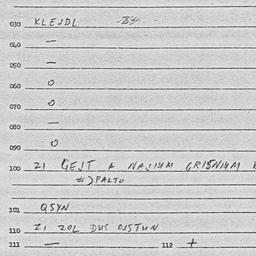 030 KLEJDL -Z4-
040 —
050 —
060 O
070 O
080 —
090 O
100 ZI GEJT A NAJIHM GRISNIHM
=> PALTO
101 QSYN
110 ZI ZOL DUS OJSTUN
111 — 112 +